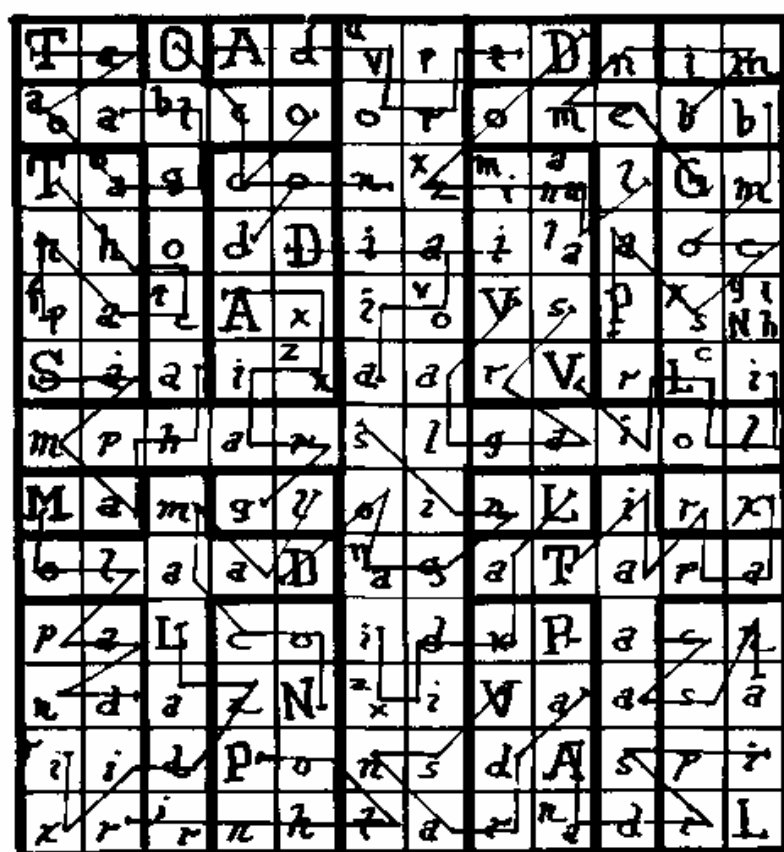 T a O A d u v r t D n i m
a o a b l c o o r o m e b b
T o a g c o n x z m i a n m l G m
n h o d D i a i l a a o c
p a t c A x i v o V s P x s y i N h
S a a i z x a a r V r L c i
m p h a r s l g a i o l
M a m g l o i n L i r x
o l a a D n a g a T a r a
p a L c o i d x P a c n
n d a z N z x i V a a s a
r i i d P o n s d A s p i
x r i r n h t a r n a d i L